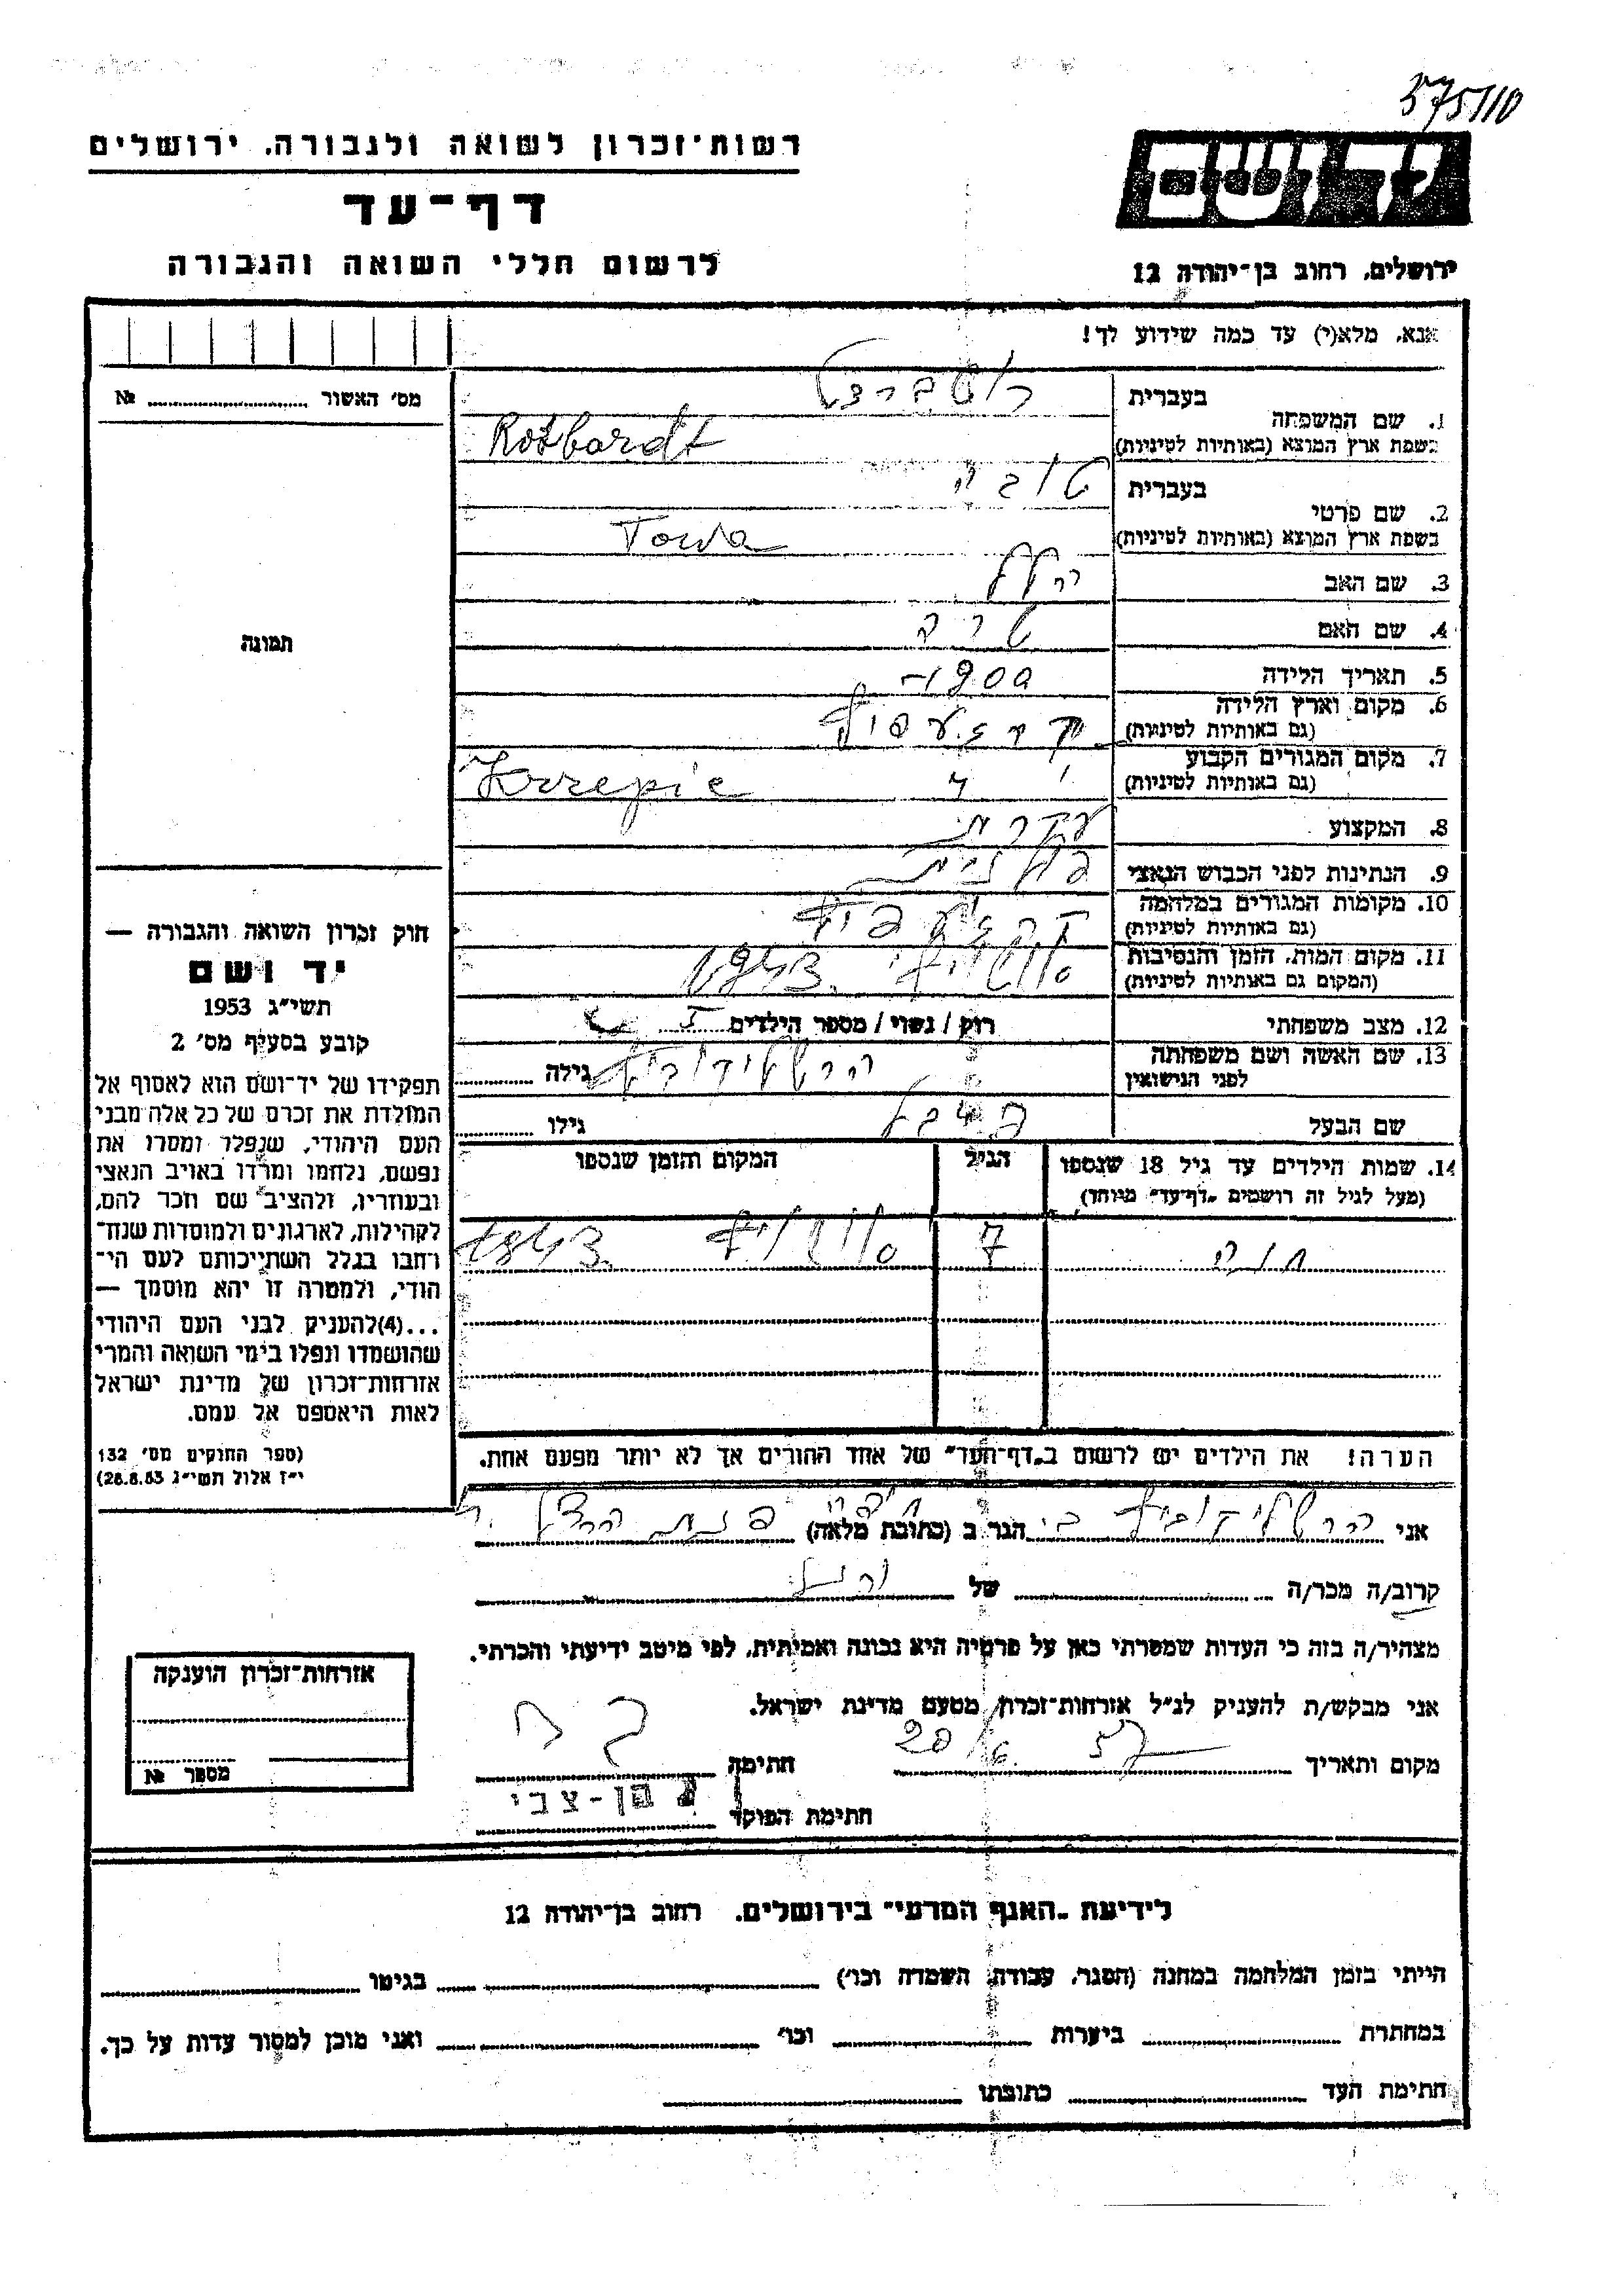 575/10
יד ושם
רשות־זכרון לשואה ולגבורה. ירושלים
דף־עד
לרשום חללי השואה והגבורה
ירושלים. רחוב בן־יהודה 12
אנא. מלא(י) עד כמה שידוע לך!
מס׳ האשור № 
תמונה
חוק זכרון השואה והגבורה —
יד ושם
תשי״ג 1953
קובע בסעיף מס׳ 2
תפקידו של יד־ושם הוא לאסוף אל
המולדת את זכרם של כל אלה מבני
העם היהודי, שנפלו ומסרו את
נפשם, נלחמו ומרדו באויב הנאצי
ובעוזריו, ולהציב שם וזכר להם,
לקהילות, לארגונים ולמוסדות שנח־
רחבו בגלל השתייכותם לעם הי־
הודי, ולמטרה זו יהא מוסמך —
...(4)להעניק לבני העם היהודי
שהושמדו ונפלו בימי השואה והמרי
אזרחות־זכרון של מדינת ישראל
לאות היאספם אל עמם.
(ספר החוקים מס׳ 132
י״ז אלול תשי״ג 28.8.53)
1. שם המשפחה בעברית רוטברדט
בשפת ארץ המוצא (באותיות לטיניות) Rotbardt
2. שם פרטי בעברית טובה
בשפת ארץ המוצא (באותיות לטיניות) Towa
3. שם האב
4. שם האם
5. תאריך הלידה 1900
6. מקום וארץ הלידה
(גם באותיות לטיניות)
7. מקום המגורים הקבוע
(גם באותיות לטיניות) Krzepice
8. המקצוע עקרת
9. הנתינות לפני הכבוש הנאצי פולנית
10. מקומות המגורים במלחמה
(גם באותיות לטיניות)
11. מקום המות. הזמן והנסיבות
(המקום גם באותיות לטיניות)
12. מצב משפחתי רוק / נשוי / מספר הילדים 1
13. שם האשה ושם משפחתה הרשליקוביץ גילה
לפני הנישואין
שם הבעל גילו
14. שמות הילדים עד גיל 18 שנספו הגיל המקום והזמן שנספו
(מעל לגיל זה רושמים „דף־עד״ מיוחד)
חנה 7
הערה! את הילדים יש לרשום ב„דף־העד״ של אחד ההורים אך לא יותר מפעם אחת.
אני הרשליקוביץ הגר ב (כתובת מלאה) חיפה
קרוב/ה מכר/ה של
מצהיר/ה בזה כי העדות שמסרתי כאן על פרטיה היא נכונה ואמיתית, לפי מיטב ידיעתי והכרתי.
אני מבקש/ת להעניק לנ״ל אזרחות־זכרון מטעם מדינת ישראל.
מקום ותאריך 57 20/6. חתימה
חתימת הפוקד בן-צבי
אזרחות־זכרון הוענקה
מספר №
לידיעת „האגף המדעי״ בירושלים. רחוב בן־יהודה 12
הייתי בזמן המלחמה במחנה (הסגר, עבודה, השמדה וכו׳) בגיטו
במחתרת ביערות וכו׳ ואני מוכן למסור עדות על כך.
חתימת העד כתובתו